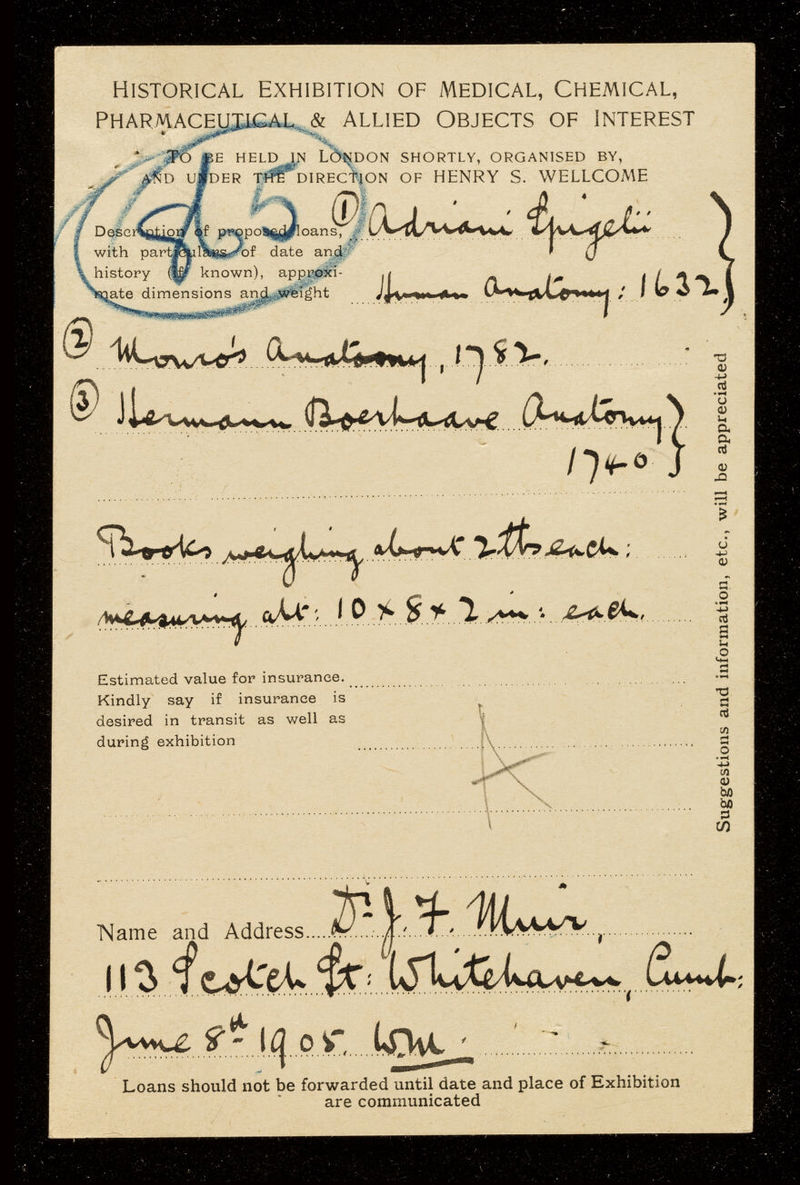 HISTORICAL EXHIBITION OF MEDICAL, CHEMICAL,
PHARMACEUTICAL & ALLIED OBJECTS OF INTEREST
TO BE HELD IN LONDON SHORTLY, ORGANISED BY,
AND UNDER THE DIRECTION OF HENRY S. WELLCOME
Description of proposed loans,
with particulars of date and
history (if known), approxi-
mate dimensions and weight
① Adriani Spigelii
Human Anatomy: 1632
② Monro's Anatomy, 1782.
③ Hermann Boerhaave Anatomy
1740
Books weighing about 2 lbs each:
measuring abt: 10 x 8 x 2 in: each.
Estimated value for insurance.
Kindly say if insurance is
desired in transit as well as
during exhibition
Suggestions and information, etc., will be appreciated
Name and Address Dr J. F. Muir,
113 Scotch St: Whitehaven, Cumb:
June 8th 1905.
Loans should not be forwarded until date and place of Exhibition
are communicated